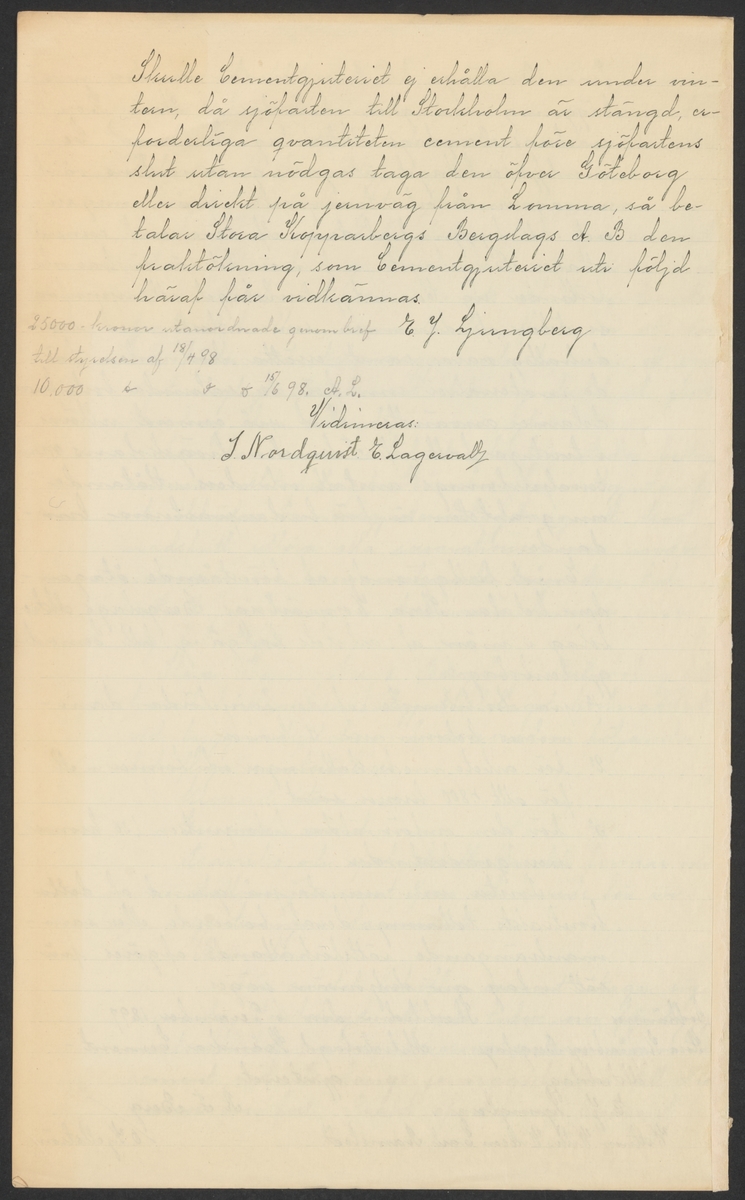 Skulle Cementgjuteriet ej erhålla den under vin-
tern, då sjöfarten till Stockholm är stängd, er-
forderliga qvantiteten cement före sjöfartens
slut utan nödgas taga den öfver Göteborg
eller direkt på jernväg från Lomma, så be-
talar Stora Kopparbergs Bergslags A. B den
fraktökning, som Cementgjuteriet uti följd
häraf får vidkännas.
E. J. Ljungberg
25000 - kronor utanordnade genom bref
till styrelsen af 18/4 98
10.000 " " " 15/6 98. A. L.
Vidimeras:
J. Nordquist E. Lagervall